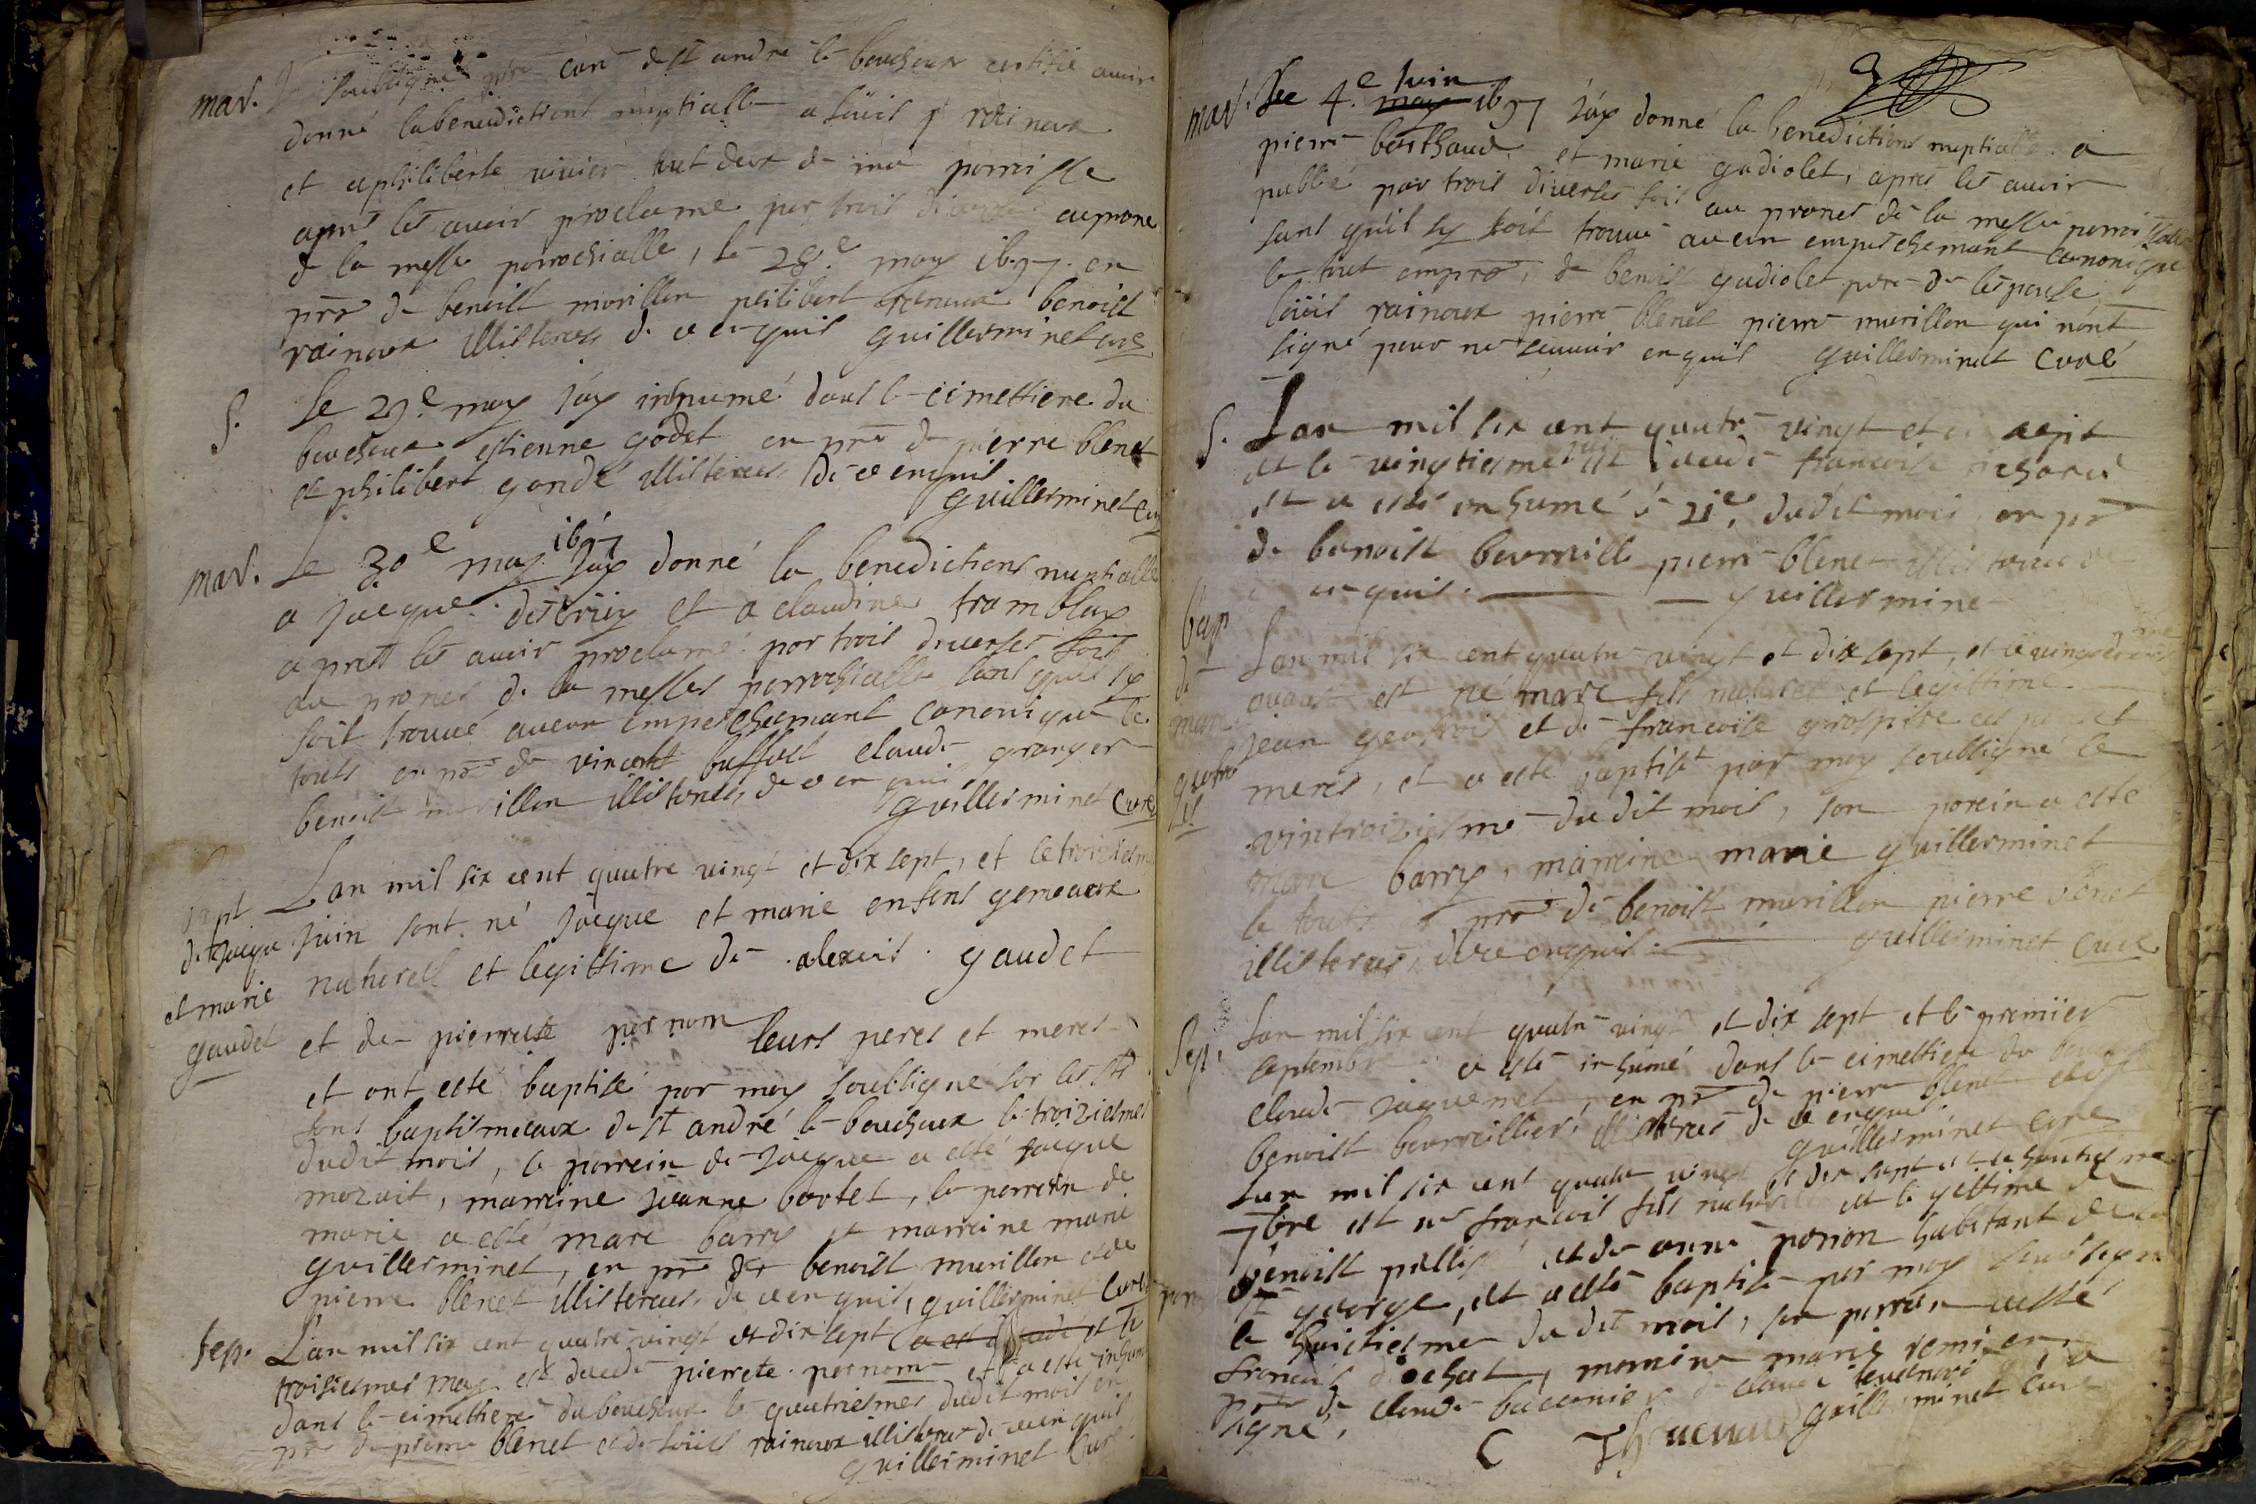 mar. soubsigné pre curé de st andré le bouchoux certifie avoir
donné la benediction nuptialle a loüis rainoux
et a philiberte vivier tout deux de ma parroisse
apres les avoir proclamé par trois diverses au prone
de la messe parrochialle, le 28e may 1697 en
pnce de benoist morillon philibert benoist
rainoux illisteres de ce enquis guillerminet curé
S. Le 29e may iay inhumé dans le cimettiere du
bouchoux estienne godet en pnce de pierre blenet
et philibert gondé illisteres de ce enquis
guillerminet cu
mar. Le 30e may 1697 iay donné la benedictions nuptialle
a jacque et a claudine tramblay
a prest les avoir proclamé par trois diverses fois
au prones de la messes parrochialle sans quil sy
soit trouvé aucun empeschemant canonique le
touts en pnce de vincent buffest claude granger
benoist morillon illisteres de ce enquis
guillerminet Curé
Lan mil six cent quatre vingt et dix sept, et le troiziesme
bapt juin sont né jacque et marie enfens gemeaux
de jacque naturell et legittime de alexis gaudet
et marie
gaudet et de pierrete pernom leurs peres et meres
et ont esté baptisé par moy soubsigné sor les sts
fons baptismeaux de st andré le bouchoux le troiziesmes
dudit mois, le parrein de jacque a esté jacque
mozuit, marreine jeanne bortet, le parrein de
marie a esté marc barry et marreine marie
guillerminet, en pnce de benoist murillon et de
pierre blenet illisteres de ce enquis, guillerminet Curé
sep. Lan mil six cent quatre vingt et dix sept et le
troisiesmes may est decedé pierrete pernom et a esté inhumé
dans le cimettiere du bouchoux le quatriesmes dudit mois en
pnce de pierre blenet et de loüis rainoux illisteres de ce enquis
guillerminet Curé
mar. Le 4.e may Juin 1697 iáy donné la benedictions nuptialle a
pierre berthaud et marie gudiolet, apres les avoir
publié par trois diverses fois au prones de la messe parroissialle
sans quil sy soit trouvé aucun empeschemant canonique
le tout en pnce, de benoist gudiolet pere de lespouse
loüis rainoux pierre blenet pierre murillon qui nont
signé pour ne scavoir enquis guillerminet Curé
S. Lan mil six cent quatre vingt et sept
et le vingtiesme est decedé francoise richard
et a esté enhumé le 21e dudit mois en pnce
de benoist bourveille pierre blenet illisteres de
ce enquis. guillermine
bap Lan mil six cent quatre vingt et dix sept, et le vingtdeux
de aoust est né marc fils naturel et legittime
marc jean geoffroi et de francoise
meres, et a esté baptisé par moy soubsigné le
vintroiziesme dudit mois, son parein a esté
marc barry, marreine marie guillerminet
le touts pnce de benoist murillon pierre blenet
illisteres, de ce enquis guillerminet Curé
Sep. Lan mil six cent quatre vingt et dix sept et le premiier
septembre a esté inhumé dans le cimettiere du
claude jaquenet, en pnce de pierre blenet et de
benoist bourveillier, illisteres de ce enquis
guillerminet Curé
Lan mil six cent quatre vingt et dix sept et le huitiesme
7bre est né francois fils naturel et legettime de
benoist pillis et de anne perron habitant de
st george, et a esté baptisé par moy soubsigné
le huictiesme dudit mois, son parrein a esté
francois dochat, marreine marie
pnce de claude de claude
signé, guillerminet Curé